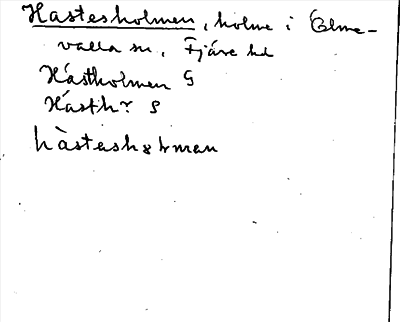 Hästesholmen, holme i Elme-
valla sn, Fjäre hd
Hästholmen G
Hästh:r S
hàstashɔrman